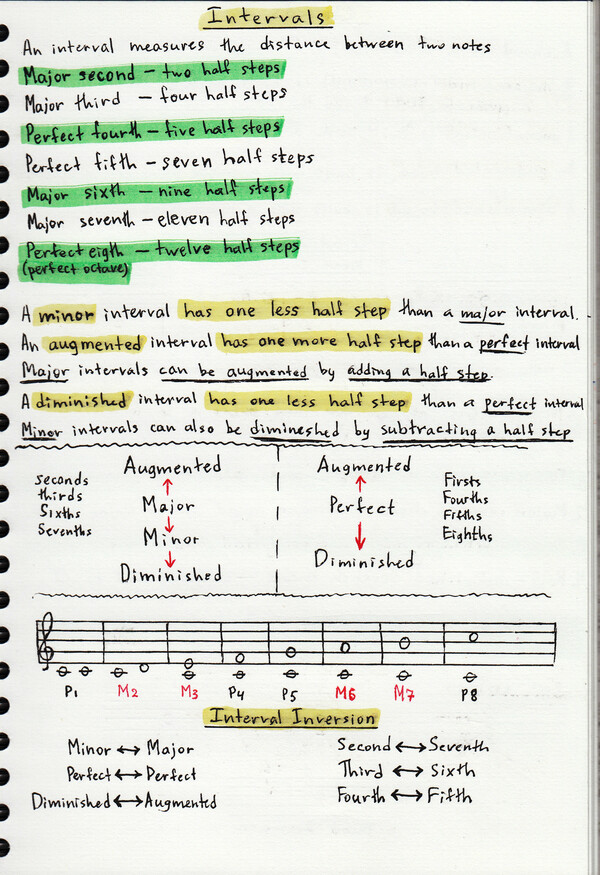 Intervals
An interval measures the distance between two notes
Major second – two half steps
Major third – four half steps
Perfect fourth – five half steps
Perfect fifth – seven half steps
Major sixth – nine half steps
Major seventh – eleven half steps
Perfect eigth – twelve half steps
(perfect octave)
A minor interval has one less half step than a major interval.
An augmented interval has one more half step than a perfect interval
Major intervals can be augmented by adding a half step.
A diminished interval has one less half step than a perfect interval
Minor intervals can also be dimineshed by subtracting a half step
seconds
thirds
Sixths
Sevenths
Augmented
↑
Major
↓
Minor
↓
Diminished
Augmented
↑
Perfect
↓
Diminished
Firsts
Fourths
Fifths
Eighths
P1 M2 M3 P4 P5 M6 M7 P8
Interval Inversion
Minor ↔ Major
Perfect ↔ Perfect
Diminished ↔ Augmented
Second ↔ Seventh
Third ↔ Sixth
Fourth ↔ Fifth